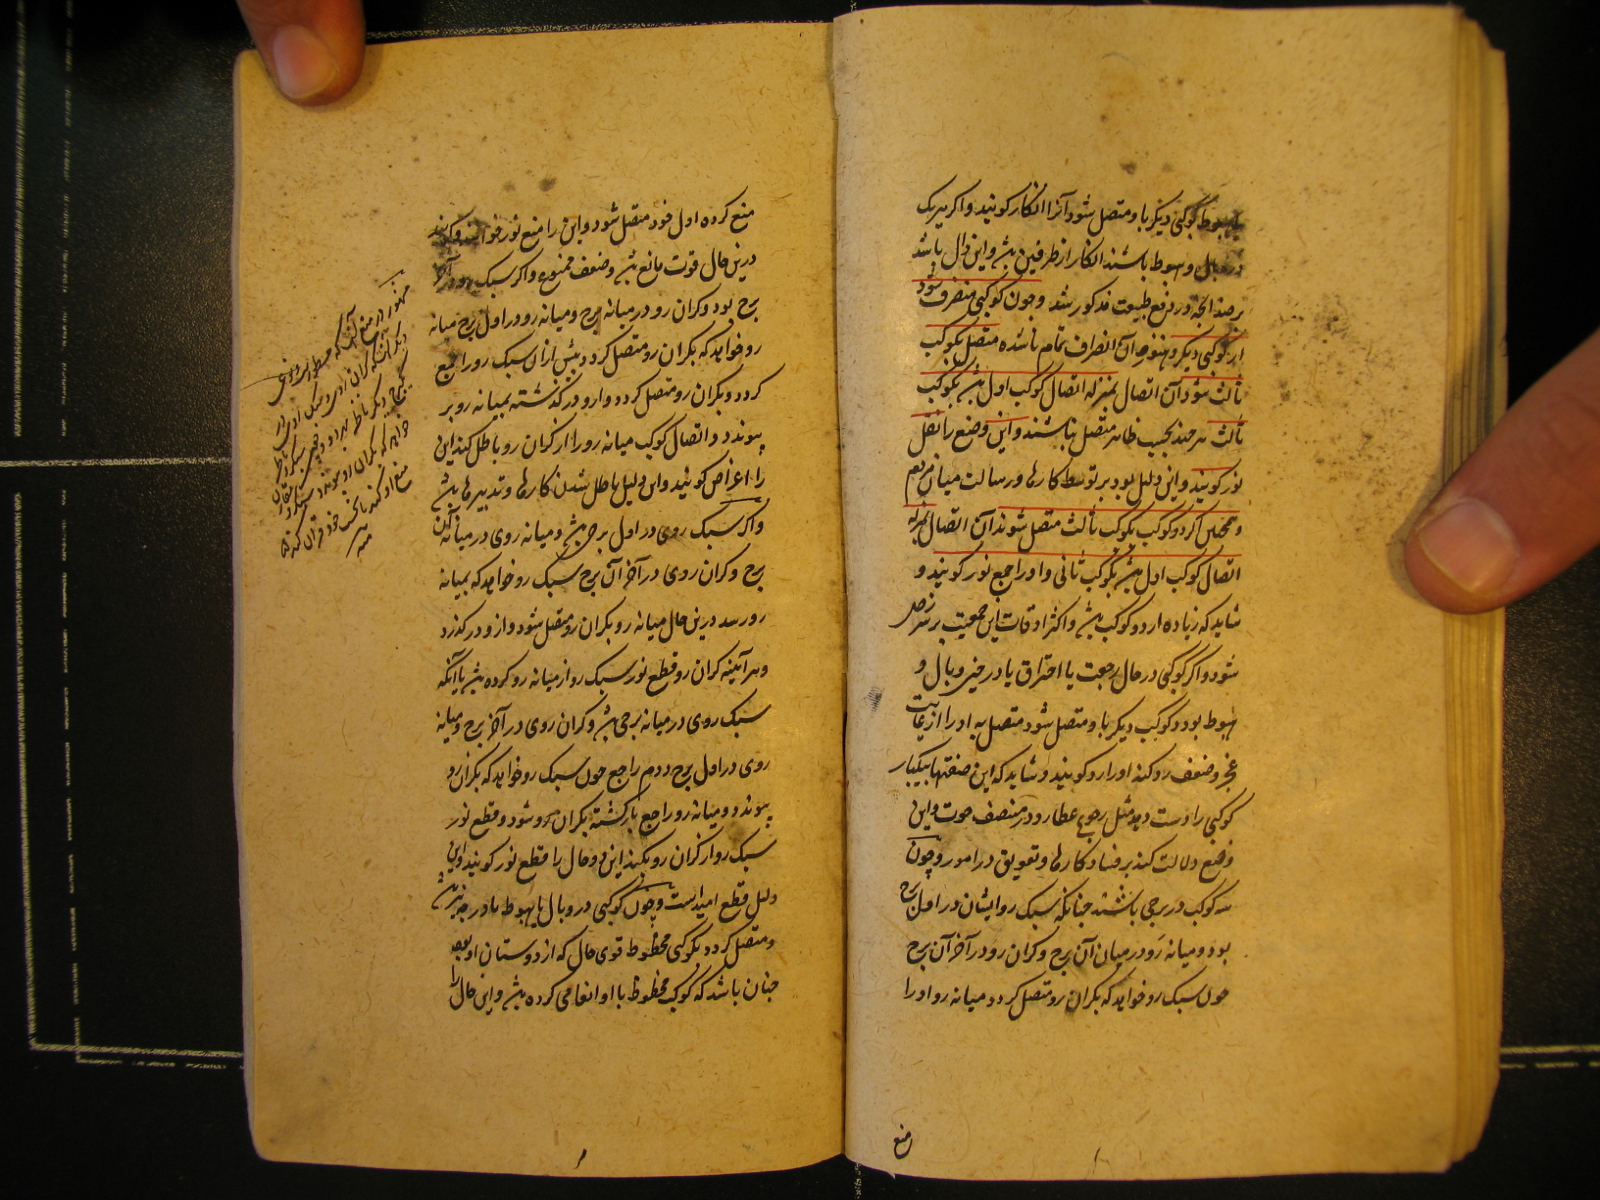 هبوط کوکبی دیگر باو متصل شود آنرا انکار کویند و اکر هر یک
در وبال و هبوط باشند انکار از طرفین بشد و این دال باشد
بر ضد انچه در دفع طبیعت مذکور شد و چون کوکبی منصرف شود
از کوکبی دیگر و هنوز آن انصراف تمام ناشده متصل بکوکب
ثالث شود آن اتصال بمنزله اتصال کوکب اول بشد بکوکب
ثالث هر چند بحسب ظاهر متصل نباشند و این وضع را نقل
نور کویند و این دلیل بود بر توسط کارها و رسالت میان مردم
و همچنین اکر دو کوکب بکوکب ثالث متصل شوند آن اتصال بمنزله
اتصال کوکب اول بشد بکوکب ثانی و او را جمع نور کویند و
شاید که زیاده از دو کوکب بشد و اکثر اوقات این جمعیت بر سر زحل
شود و اکر کوکبی در حال رجعت یا احتراق یا در حیز وبال و
هبوط بود و کوکب دیگر باو متصل شود متصل به او را از غایت
عجز و ضعف رد کند او را رد کویند و شاید که این صفتها بیکبار
کوکبی را دست دهد مثل رجوع عطارد در منتصف حوت و این
وضع دلالت کند بر فساد کارها و تعویق در امور و چون
سه کوکب در برجی باشند چنانکه سبک روایشان در اول برج
بود و میانه رو در میان آن برج و کران رو در آخر آن برج
چون سبک رو خواهد که بکران رو متصل کردد میانه رو او را
منع
منع کرده اول خود متصل شود و این را منع نور خوانند و کویند
درین حال قوت مانع بشد و ضعف ممنوع و اکر سبک رو در آخر
برج بود و کران رو در میانه برج و میانه رو در اول برج میانه
رو خواهد که بکران رو متصل کردد پیش از آن سبک رو راجع
کردد و بکران رو متصل کردد و ازو در کذشته بمیانه رو بر
پیوندد و اتصال کوکب میانه رو را از کران رو باطل کند این
را اعراض کویند و این دلیل باطل شدن کارها و تدبیرها بشد
و اکر سبک روی در اول برجی بشد و میانه روی در میانه آن
برج و کران روی در آخر آن برج سبک رو خواهد که بمیانه
رو رسد درین حال میانه رو بکران رو متصل شود و ازو در کذرد
و هر آینه کران رو قطع نور سبک رو از میانه رو کرده بشد یا آنکه
سبک روی در میانه برجی بشد و کران روی در آخر برج و میانه
روی در اول برج دوم راجع چون سبک رو خواهد که بکران رو
پیوندد و میانه رو راجع بازکشته بکران رو شود و قطع نور
سبک رو از کران رو بکند این دو حال را قطع نور کویند و این
دلیل قطع امید است و چون کوکبی در وبال یا هبوط یا در بئر بشد
و متصل کردد بکوکبی محظوظ قوی حال که از دوستان او بود
چنان باشد که کوکب محظوظ با او انعامی کرده بشد و این حال را